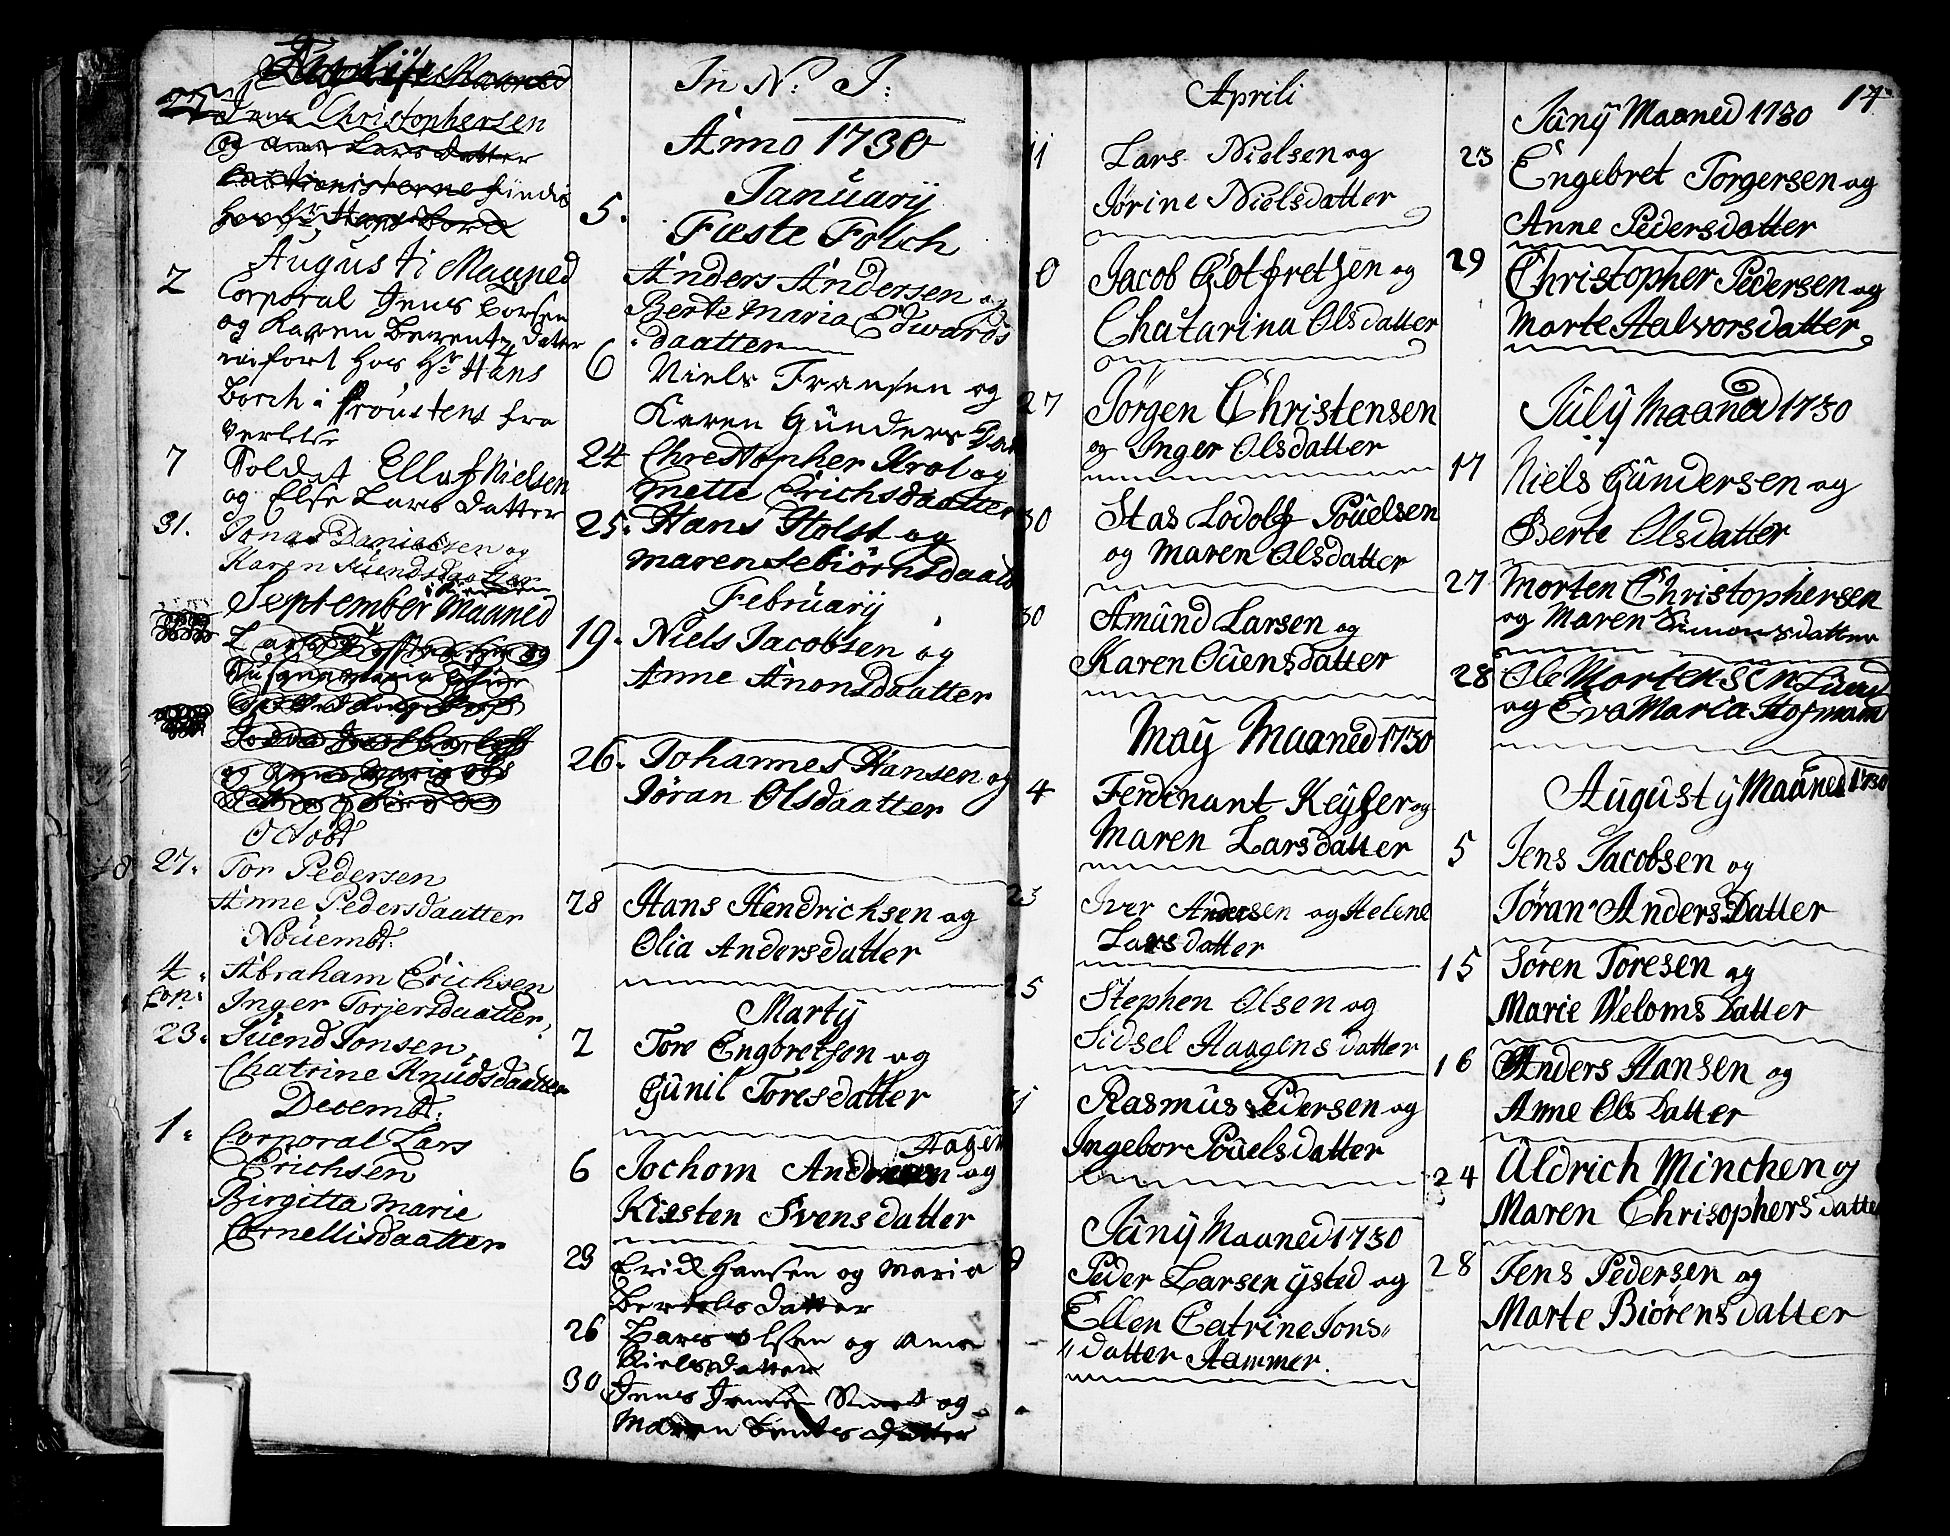 27 Jens Christophersen
og Anne Lars datter
Augusti Maaned
2 Corporal Jens
og Karen datter
hos Hr Hans
Borch i fra
7 Soldat Ellaf Nielsen
og Else Lars datter
31. Jonas Danielsen og
Karen
September Maaned
Octobr
27. Tor Pedersen
Anne Pedersdaatter
Novembr:
4. Abraham Erichsen
Cop: Inger Torjersdaatter,
23. Suend Jonsen
Chatrine Knudsdaatter
Decembr:
1. Corporal Lars
Erichsen
Birgitta Marie
Cornellisdaatter
In N: J:
Anno 1730
Januarij
5. Fæste Folch
Anders Andersen og
Berte Maria Edwards
daatter
6 Niels Fransen og
Karen Gunders Dat
24 Chrestopher Krol og
Mette Erichsdaatter
25. Hans Holst og
Maren Sebiørnsdaatt
Februarij
19. Niels Jacobsen og
Anne Anonsdaatter
26. Johannes Hansen og
Jøran Olsdaatter
28 Hans Hendrichsen og
Olia Andersdatter
Martij
2 Tore Engbretsen og
Gunil Toresdatter
Aagen
6 Jochom og
Kiesten Svens datter
23 Erick Hansen og Maria
Bertels datter
26 Lars Olsen og Anne
Niels datter
30 Jens Jensen og
Maren datter
Aprili
11 Lars Nielsen og
Jørine Nielsdatter
0 Jacob Gotfretsen og
Chatarina Olsdatter
27 Jørgen Christensen
og Inger Olsdatter
30 Stas Lodolf Pouelsen
og Maren Olsdatter
30 Amund Larsen og
Karen Ouensdatter
May Maaned 1730
4 Ferdinant Keyser og
Maren Larsdatter
23 Iver Andersen og Helene
Larsdatter
25 Stephen Olsen og
Sidsel Haagens datter
31 Rasmus Pedersen og
Ingebor Pouelsdatter
Juny Maaned 1730
9 Peder Larsen Ysted og
Ellen Catrine Jons„
„datter Hammer.
14
Juny Maaned 1730
23 Engebret Torgersen og
Anne Pedersdatter
29 Christopher Pedersen og
Marte Halvorsdatter
July Maaned 1730
17 Niels Gundersen og
Berte Olsdatter
27 Morten Christophersen
og Maren Simonsdatter
28 Ole Mortensen Lund
og Eva Maria Hofmand
Augusty Maaned 1730
5 Jens Jacobsen og
Jøran Anders Datter
15 Søren Toresen og
Marie Veloms Datter
16 Anders Hansen og
Anne Ols Datter
24 Uldrich Minchen og
Maren Chrisophers datter
28 Jens Pedersen og
Marte Biørens datter